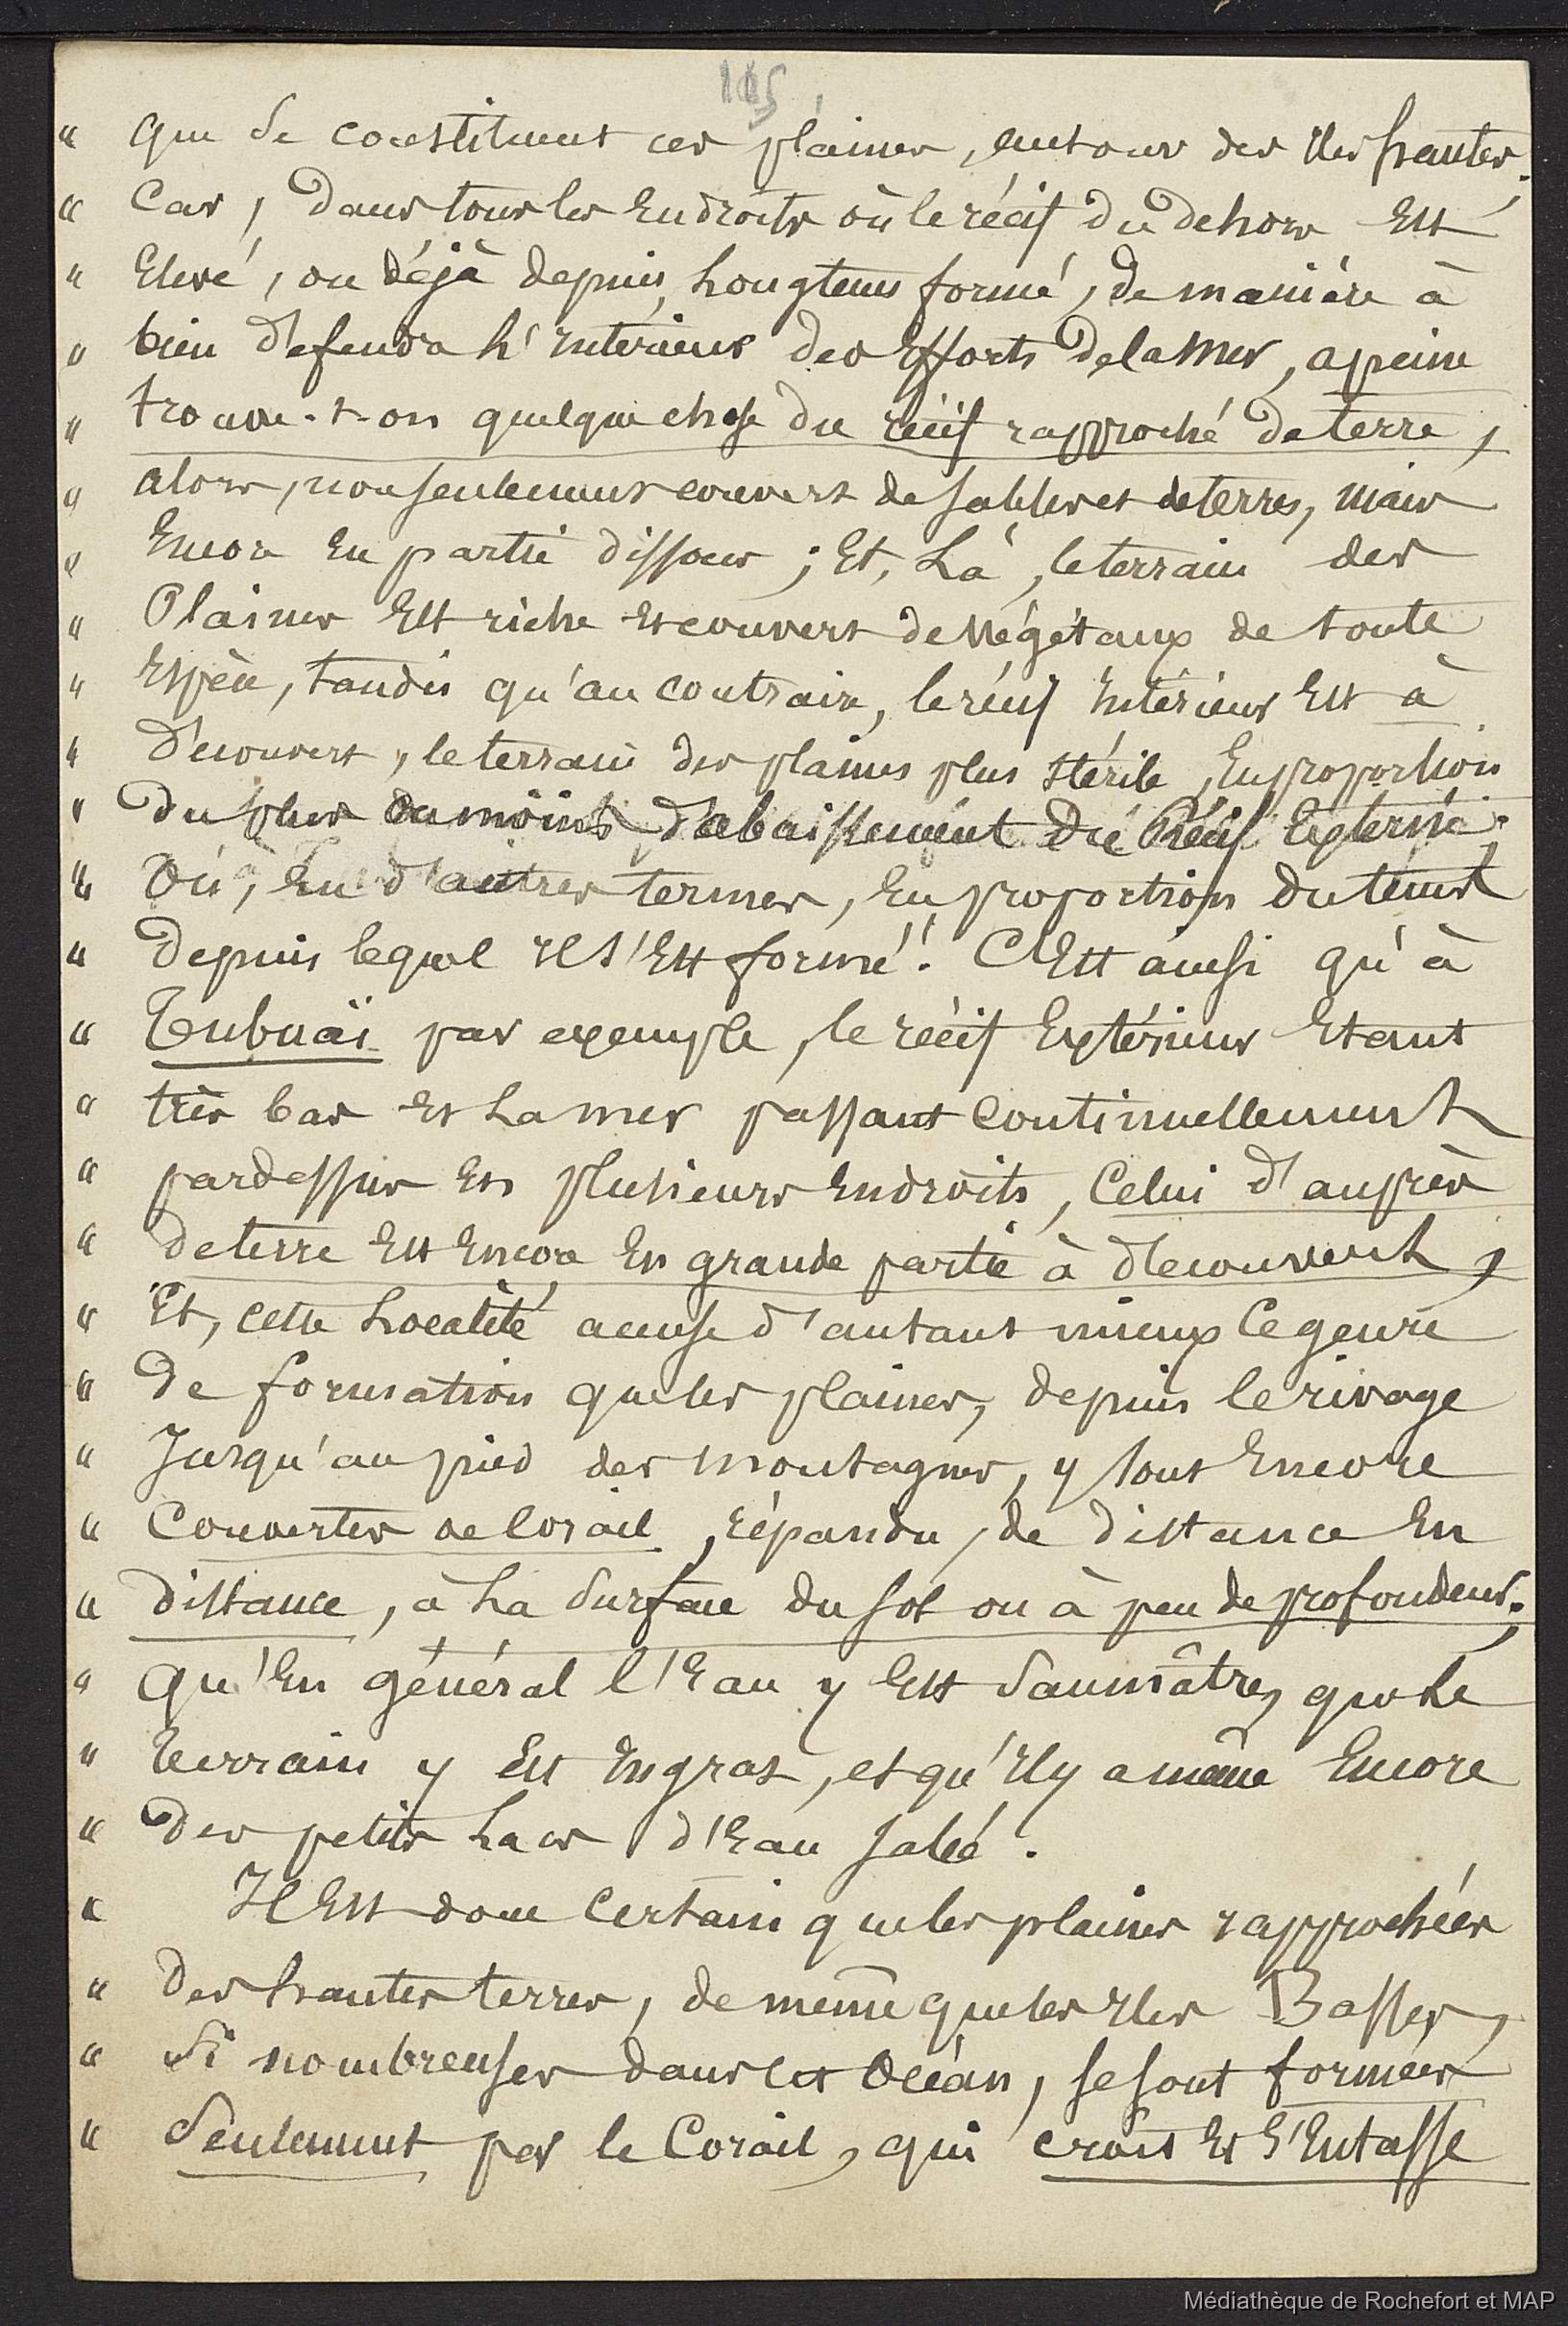 105
" que se constituent ces plaines, autour des Iles hautes;
" Car, dans tous les Endroits où le récif du dehors Est
" Elevé, ou déjà depuis longtems formé, de manière à
" bien défendre l'Intérieur des Efforts de la Mer, a peine
" trouve-t-on quelque chose du récif rapproché de terre,
" alors, non seulement couvert de sables et de terres, mais
" Encore En partie dissous ; Et, Là, le terrain des
" Plaines Est riche et couvert de Végétaux de toute
" Espèce, tandis qu'au contraire, le récif Intérieur Est à
" découvert, le terrain des plaines plus stérile, En proportion
" du plus ou moins d'abaissement du Récif Externe.
" Ou, En d'autres termes, En proportion du tems
" depuis lequel Il s'Est formé! C'Est ainsi qu'à
" Tubuaï par exemple, le récif Extérieur Etant
" très bas et La mer passant Continuellement
" pardessus En plusieurs Endroits, Celui d'auprès
" de terre Est Encore En grande partie à découvert,
" Et, cette Localité accuse d'autant mieux Ce genre
" de formation que les plaines, depuis le rivage
" Jusqu'au pied des montagnes, y sont Encore
" Couvertes de Corail, répandu, de distance En
" distance, à La Surface du sol ou à peu de profondeur;
" qu'En général l'Eau y Est Saumâtre, que Le
" terrain y Est Ingrat, et qu'Il y a même Encore
" des petits Lacs d'Eau salée.
" Il Est donc Certain que les plaines rapprochées
" des hautes terres, de même que les Iles Basses,
" Si nombreuses dans cet Océan, se sont formées
" Seulement par le Corail, qui croît Et s'Entasse
Médiathèque de Rochefort et MAP